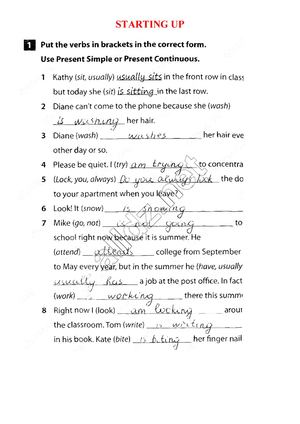 STARTING UP
1 Put the verbs in brackets in the correct form.
Use Present Simple or Present Continuous.
1 Kathy (sit, usually) usually sits in the front row in class
but today she (sit) is sitting in the last row.
2 Diane can't come to the phone because she (wash)
is washing her hair.
3 Diane (wash) washes her hair eve
other day or so.
4 Please be quiet. I (try) am trying to concentra
5 (Lock, you, always) Do you always lock the do
to your apartment when you leave?
6 Look! It (snow) is snowing
7 Mike (go, not) is not going to
school right now because it is summer. He
(attend) attends college from September
to May every year, but in the summer he (have, usually
usually has a job at the post office. In fact
(work) working there this summe
8 Right now I (look) am looking arour
the classroom. Tom (write) is writing
in his book. Kate (bite) is biting her finger nail